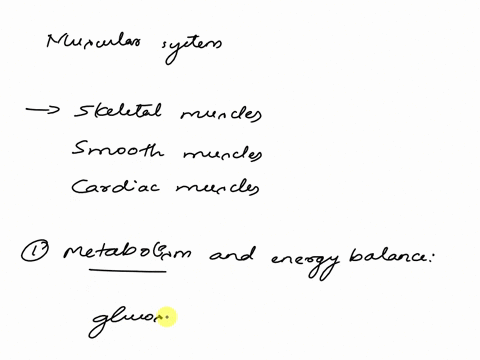 Muscular system
→ Skeletal muscles
Smooth muscles
Cardiac muscles
① Metabolism and energy balance: